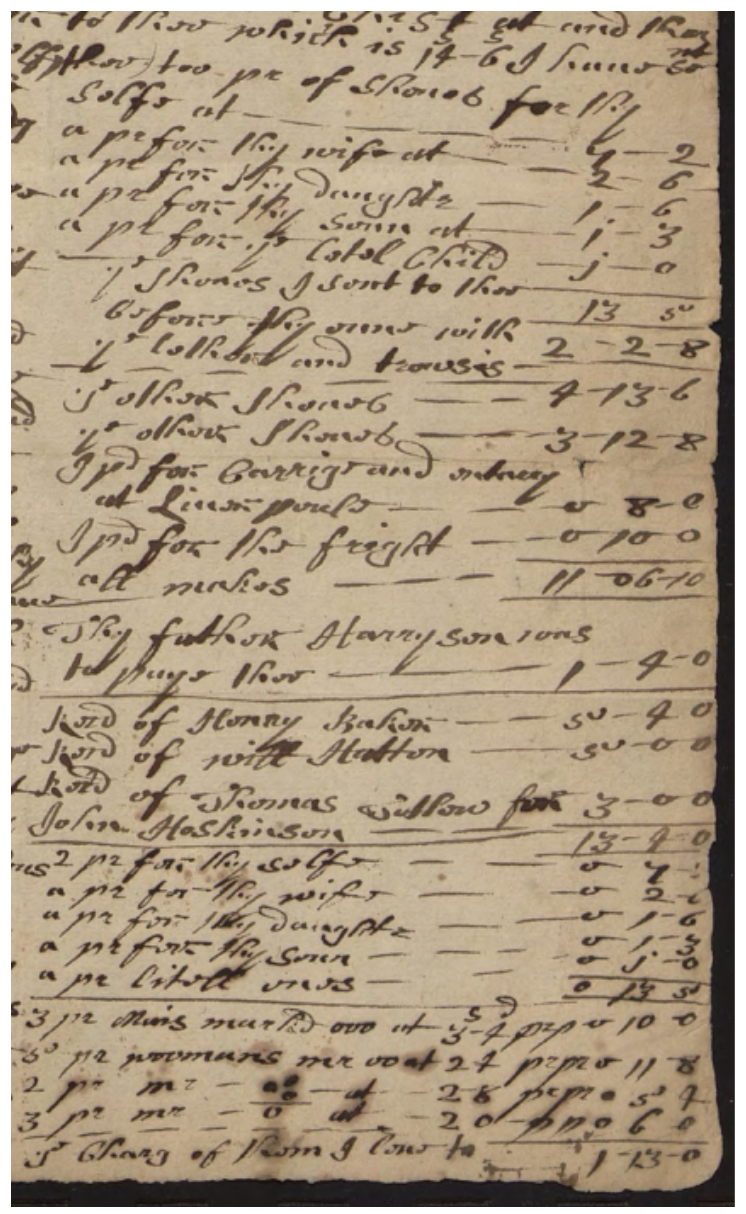 to thee which is 14-6 I haue
too pr of Shoues for thy
Selfe at
a pr for thy wife at — 7 - 2
a pr for thy daughtr — 2 - 6
a pr for thy sonn at — 1 - 6
a pr for ye letel Child — 1 - 3
ye Shoues I sent to thee — 1 - 0
before thy owne with 13 5
ye lether and trowsis — 2 - 2 - 8
ye other Shoues — 4 - 13 - 6
ye other Shoues — 3 - 12 - 8
I pd for Carrige and entary
at Liuerpoule — 0 8 - 0
I pd for the fright — 0 10 0
all makes — 11 - 06 - 10
Thy father Harryson was
to paye thee — 1 - 4 - 0
Recd of Henry Baker — 5 - 4 0
Recd of will Hatton — 5 - 0 0
Recd of Thomas for 3 - 0 0
John Hoskinson — 13 - 4 - 0
2 pr for thy selfe — 0 7
a pr for thy wife — 0 2
a pr for thy daughtr — 0 1 - 6
a pr for thy sonn — 0 1 - 3
a pr litell ones — 0 1 - 0
0 13 5
3 pr Mens markd ooo at 3s-4d prpr 0 10 0
5 pr woomans mr oo at 2 4 prpr 0 11 8
2 pr mr — at — 2 8 prpr 0 5 4
3 pr mr — o at — 2 0 — pp 0 6 0
ye Charg of them I leue to
1 - 13 - 0